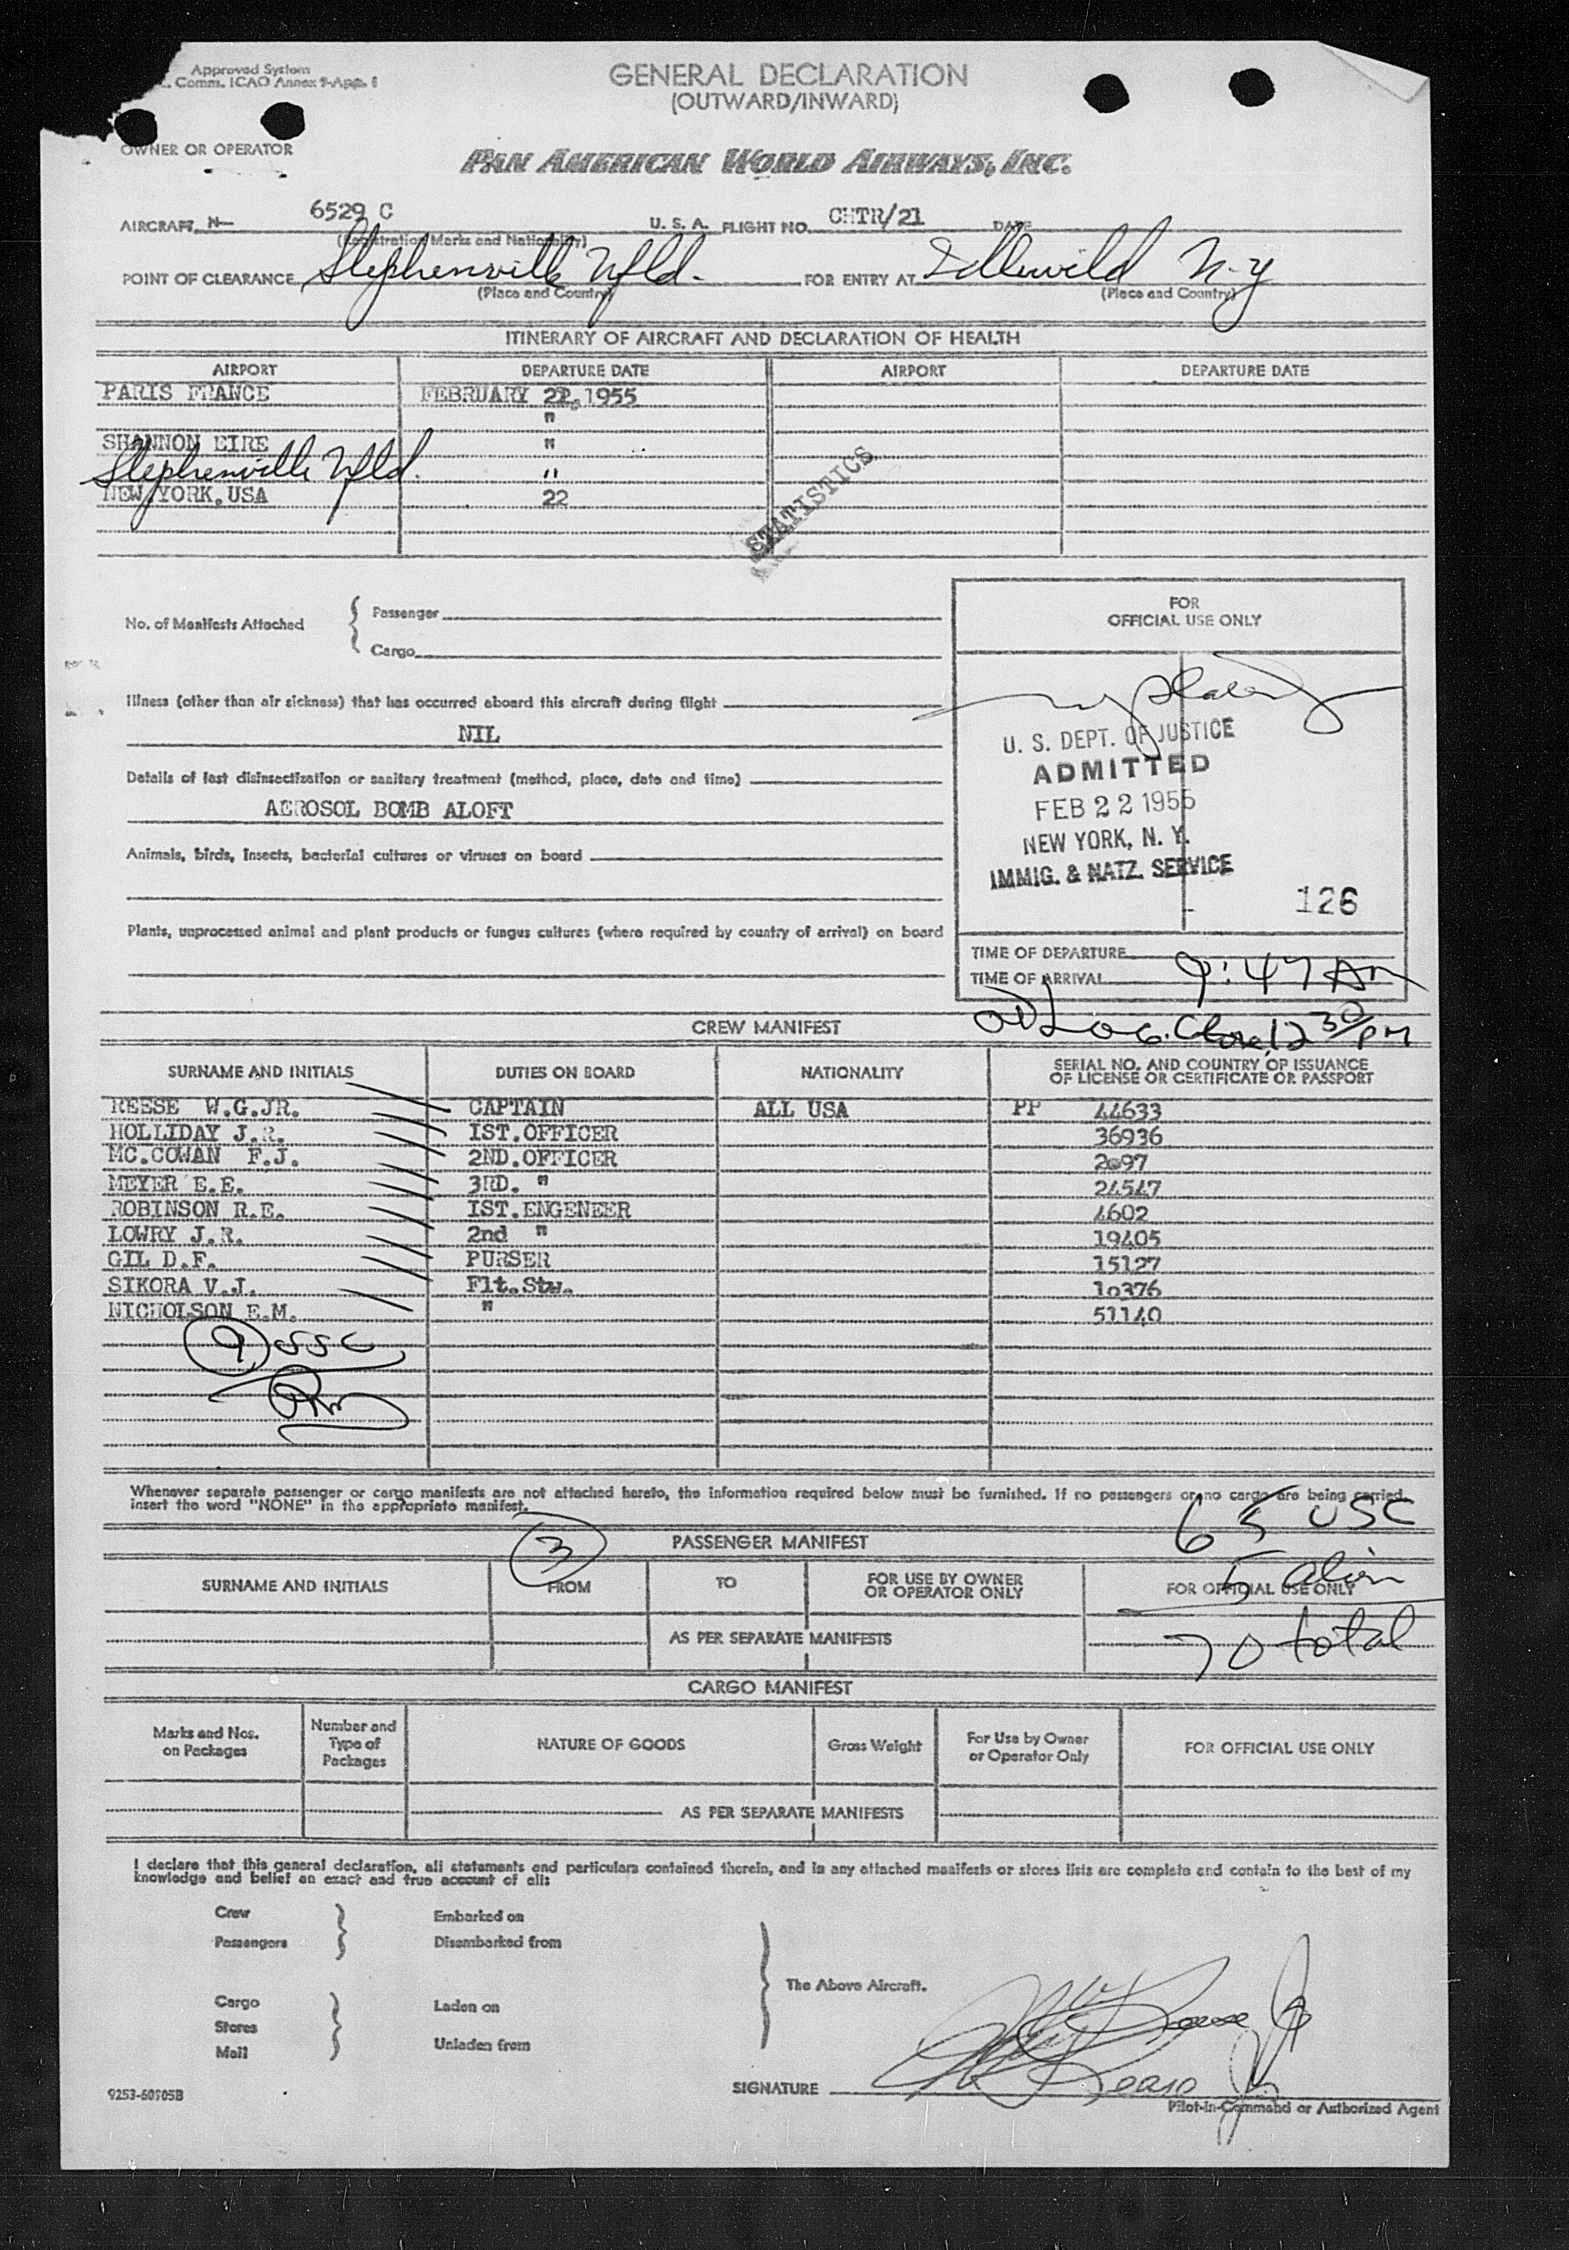 Approved System
Comm. ICAO Annex 9-App. 1
GENERAL DECLARATION
(OUTWARD/INWARD)
OWNER OR OPERATOR
PAN AMERICAN WORLD AIRWAYS, INC.
AIRCRAFT N- 6529 C U. S. A. FLIGHT NO. CHTR/21 DATE
(Registration Marks and Nationality)
POINT OF CLEARANCE Stephenville Nfld. FOR ENTRY AT Idlewild N-Y
(Place and Country) (Place and Country)
ITINERARY OF AIRCRAFT AND DECLARATION OF HEALTH
AIRPORT DEPARTURE DATE AIRPORT DEPARTURE DATE
PARIS FRANCE FEBRUARY 1955
"
SHANNON EIRE "
Stephenville Nfld. "
NEW YORK, USA 22
STATISTICS
No. of Manifests Attached
Passenger
Cargo
FOR
OFFICIAL USE ONLY
Illness (other than air sickness) that has occurred aboard this aircraft during flight
NIL
Details of last disinsectization or sanitary treatment (method, place, date and time)
AEROSOL BOMB ALOFT
Animals, birds, insects, bacterial cultures or viruses on board
Plants, unprocessed animal and plant products or fungus cultures (where required by country of arrival) on board
U. S. DEPT. OF JUSTICE
ADMITTED
FEB 22 1955
NEW YORK, N. Y.
IMMIG. & NATZ. SERVICE
126
TIME OF DEPARTURE
TIME OF ARRIVAL 9:47 AM
12 30/PM
CREW MANIFEST
SURNAME AND INITIALS DUTIES ON BOARD NATIONALITY SERIAL NO. AND COUNTRY OF ISSUANCE
OF LICENSE OR CERTIFICATE OR PASSPORT
REESE W.G.JR. CAPTAIN ALL USA PP 44633
HOLLIDAY J.R. IST.OFFICER 36936
MC.COWAN F.J. 2ND.OFFICER 2097
MEYER E.E. 3RD. " 24547
ROBINSON R.E. IST.ENGENEER 4602
LOWRY J.R. 2nd " 19405
GIL D.F. PURSER 15127
SIKORA V.J. Flt.Stw. 10376
NICHOLSON E.M. " 51140
9 USC
Whenever separate passenger or cargo manifests are not attached hereto, the information required below must be furnished. If no passengers or no cargo are being carried,
insert the word "NONE" in the appropriate manifest.
65 USC
3
PASSENGER MANIFEST
5 alien
SURNAME AND INITIALS FROM TO FOR USE BY OWNER
OR OPERATOR ONLY FOR OFFICIAL USE ONLY
AS PER SEPARATE MANIFESTS
70 total
CARGO MANIFEST
Marks and Nos.
on Packages
Number and
Type of
Packages
NATURE OF GOODS
Gross Weight
For Use by Owner
or Operator Only
FOR OFFICIAL USE ONLY
AS PER SEPARATE MANIFESTS
I declare that this general declaration, all statements and particulars contained therein, and in any attached manifests or stores lists are complete and contain to the best of my
knowledge and belief an exact and true account of all:
Crew
Passengers
Embarked on
Disembarked from
Cargo
Stores
Mail
Laden on
Unladen from
The Above Aircraft.
SIGNATURE
Pilot-in-Command or Authorized Agent
9253-60905B